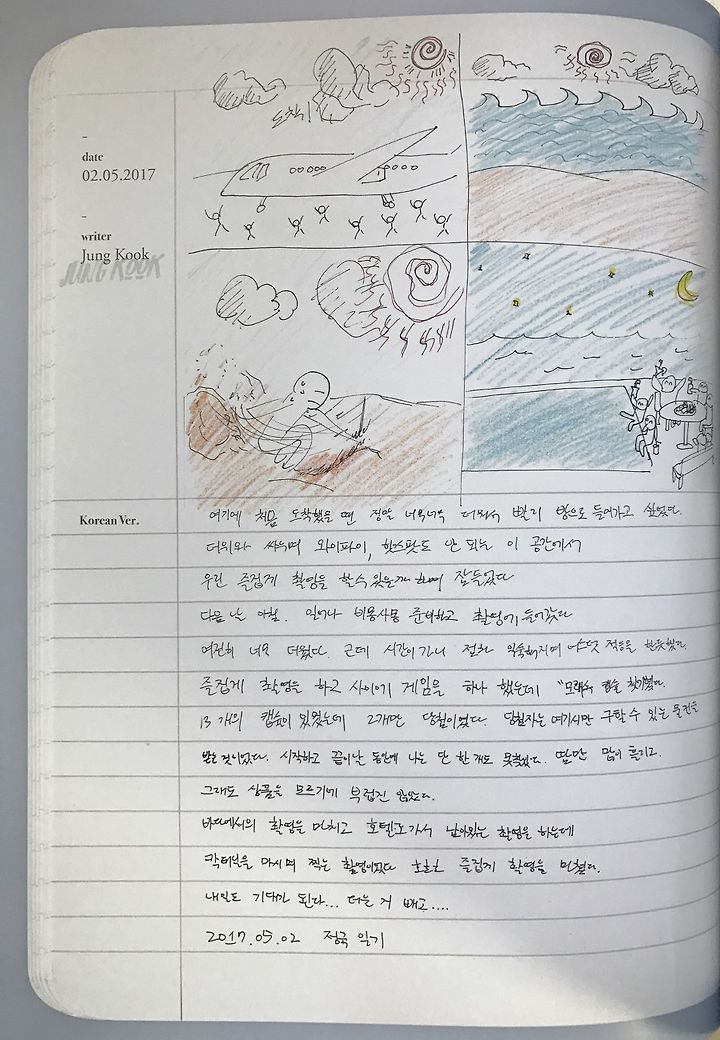 date
02.05.2017
writer
Jung Kook
JUNG KOOK
도착!
Korean Ver.
여기에 처음 도착했을 땐 정말 너무너무 더워서 빨리 방으로 들어가고 싶었다.
더위와 싸우며 와이파이, 핫스팟도 안 되는 이 공간에서
우린 즐겁게 촬영을 할 수 있을까 하며 잠들었다
다음 날 아침. 일어나 비몽사몽 준비하고 촬영에 들어갔다
여전히 너무 더웠다. 근데 시간이 가니 점차 익숙해지며 나름 적응을 한듯했다.
즐겁게 촬영을 하고 사이에 게임을 하나 했는데 "모래속 캡슐 찾기였다.
13개의 캡슐이 있었는데 2개만 당첨이었다. 당첨자는 여기서만 구할 수 있는 물건을
받는 것이었다. 시작하고 끝이날 동안에 나는 단 한 개도 못찾았다. 땀만 많이 흘리고.
그래도 상품을 모르기에 부럽진 않았다.
바다에서의 촬영을 마치고 호텔로 가서 남아있는 촬영을 하는데
칵테일을 마시며 찍는 촬영이었다 호호호 즐겁게 촬영을 마쳤다.
내일도 기대가 된다... 더운 거 빼고....
2017.05.02 정국 일기